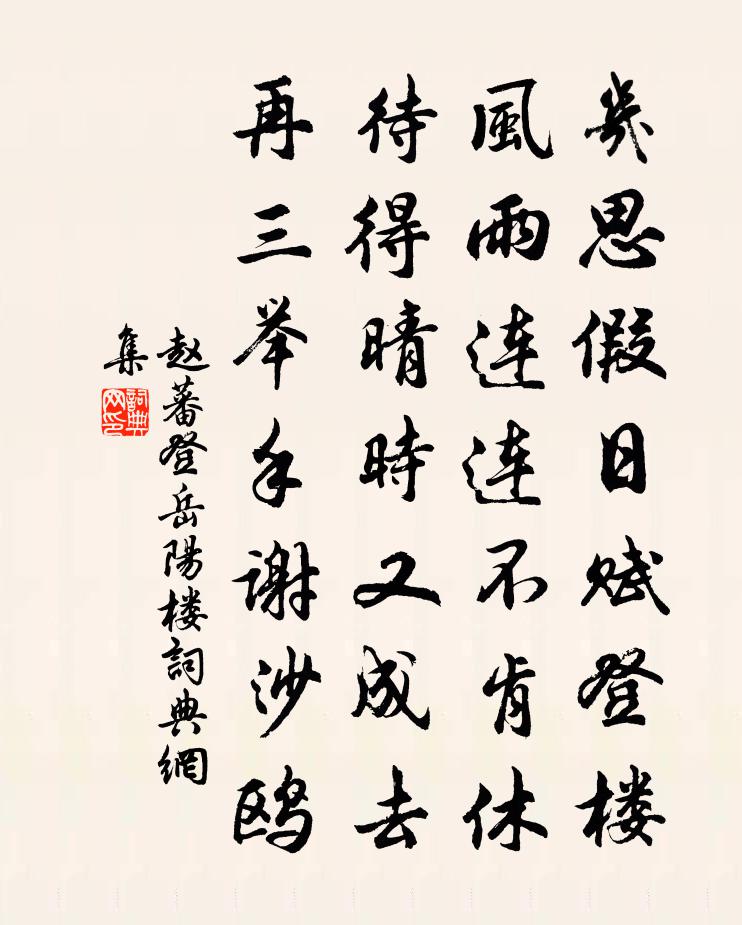 幾思假日赋登楼
風雨連連不肯休
待得晴時又成去
再三举手谢沙鸥
赵蕃登岳陽楼詞典網
集
詞典
网印